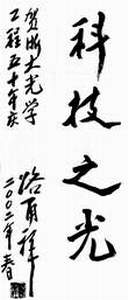 科技之光
贺浙大光学
工程五十年庆
路甬祥
二〇〇二年春